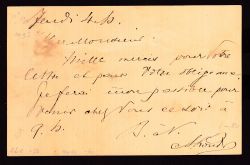 Jeudi 4 h.
Monsieur
Mille mercis pour votre
lettre et pour votre
Je ferai mon possible pour
venir chez vous ce soir à
9 h.